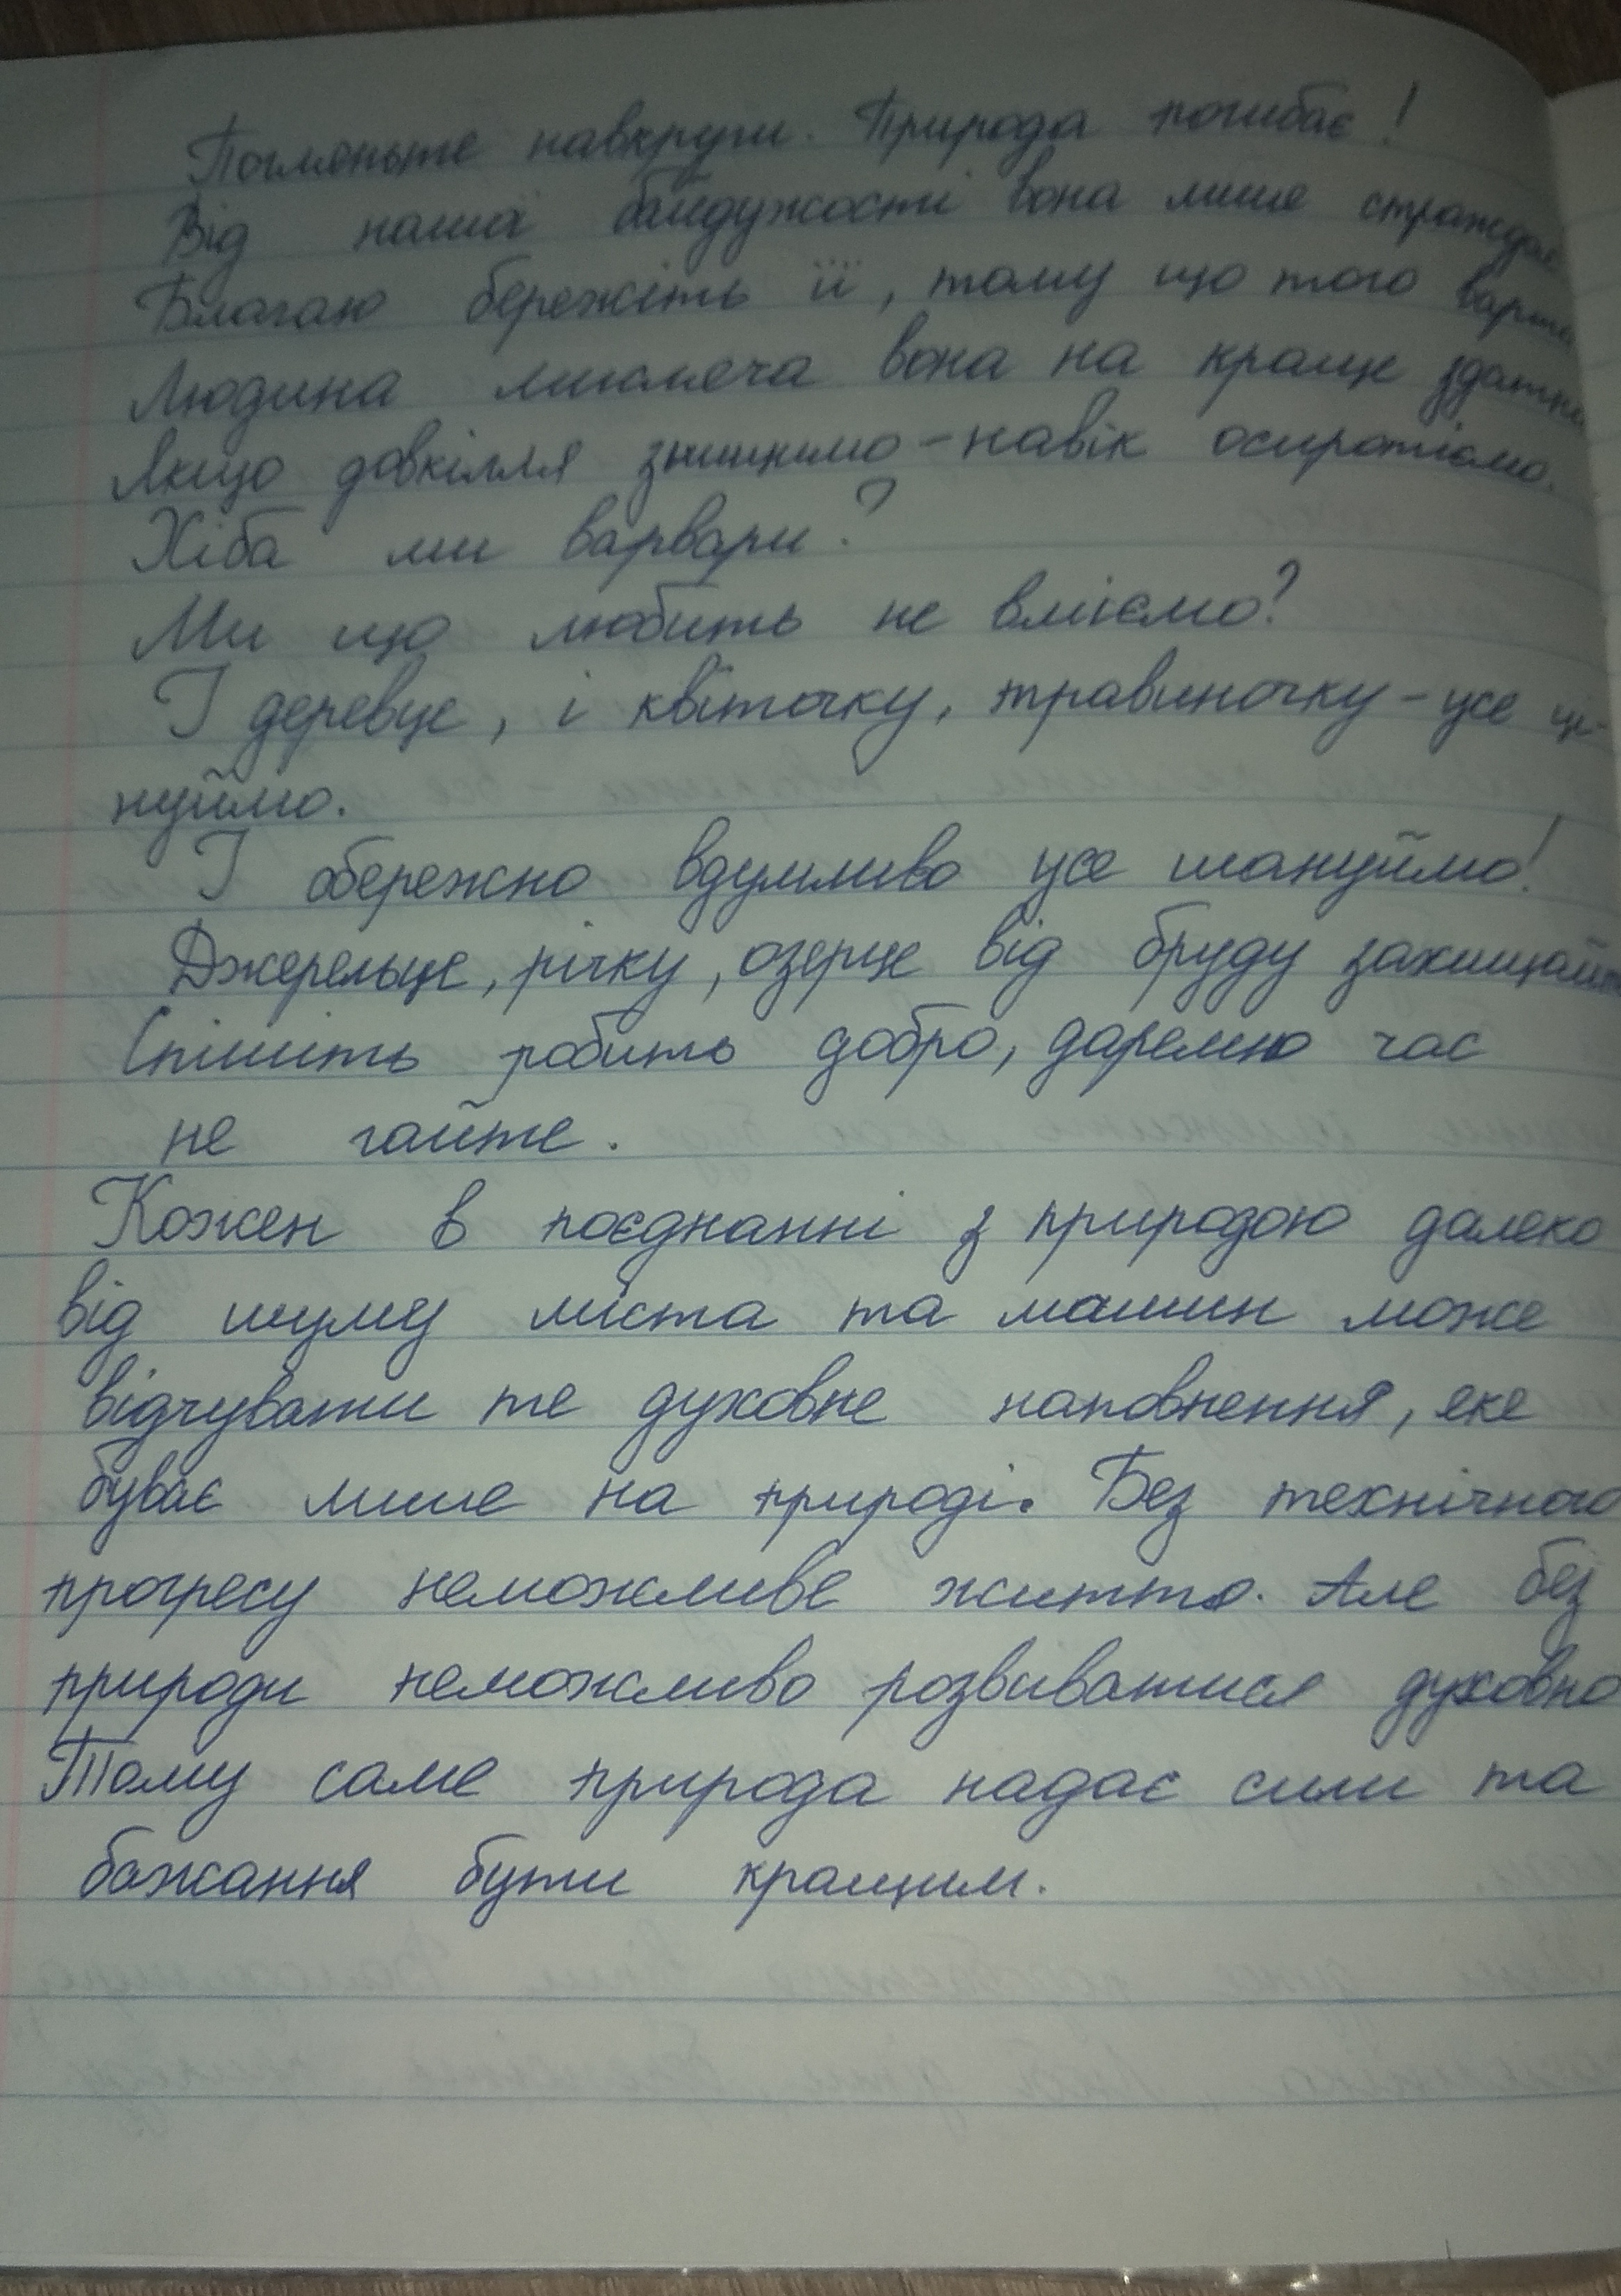 Погляньте навкруги. Природа погибає!
Від нашої байдужості вона лише страждає
Благаю бережіть її, тому що того варта
Людина мисляча вона на краще здатна
Якщо довкілля знищимо - навік осиротіємо.
Хіба ми варвари?
Ми що любить не вміємо?
І деревце, і квіточку, травиночку - усе ці-
нуймо.
І обережно вдумливо усе шануймо!
Джерельце, річку, озерце від бруду захищайте
Спішить робить добро, даремно час
не гайте.
Кожен в поєднанні з природою далеко
від шуму міста та машин може
відчувати те духовне наповнення, яке
буває лише на природі. Без технічного
прогресу неможливе життя. Але без
природи неможливо розвиватися духовно
Тому саме природа надає сили та
бажання бути кращим.